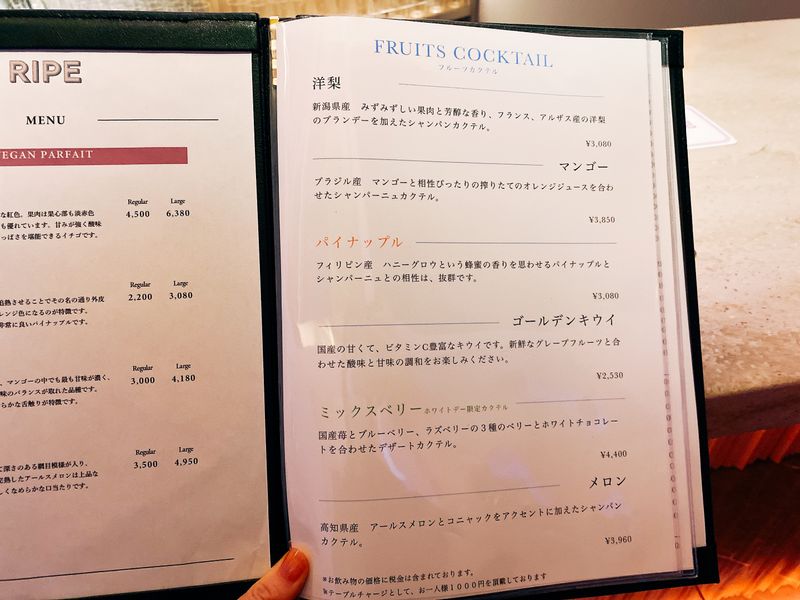 RIPE
MENU
VEGAN PARFAIT
Regular Large
4,500 6,380
な紅色。果肉は果心部も淡赤色
も優れています。甘みが強く酸味
っぱさを堪能できるイチゴです。
Regular Large
2,200 3,080
追熟させることでその名の通り外皮
レンジ色になるのが特徴です。
非常に良いパイナップルです。
Regular Large
3,000 4,180
、マンゴーの中でも最も甘味が濃く、
味のバランスが取れた品種です。
らかな舌触りが特徴です。
Regular Large
3,500 4,950
て深さのある網目模様が入り、
完熟したアールスメロンは上品な
しくなめらかな口当たりです。
FRUITS COCKTAIL
フルーツカクテル
洋梨
新潟県産 みずみずしい果肉と芳醇な香り、フランス、アルザス産の洋梨
のブランデーを加えたシャンパンカクテル。
¥3,080
マンゴー
ブラジル産 マンゴーと相性ぴったりの搾りたてのオレンジジュースを合わ
せたシャンパーニュカクテル。
¥3,850
パイナップル
フィリピン産 ハニーグロウという蜂蜜の香りを思わせるパイナップルと
シャンパーニュとの相性は、抜群です。
¥3,080
ゴールデンキウイ
国産の甘くて、ビタミンC豊富なキウイです。新鮮なグレープフルーツと合
わせた酸味と甘味の調和をお楽しみください。
¥2,530
ミックスベリー ホワイトデー限定カクテル
国産苺とブルーベリー、ラズベリーの3種のベリーとホワイトチョコレー
トを合わせたデザートカクテル。
¥4,400
メロン
高知県産 アールスメロンとコニャックをアクセントに加えたシャンパン
カクテル。
¥3,960
※お飲み物の価格に税金は含まれております。
※テーブルチャージとして、お一人様1000円を頂戴しております